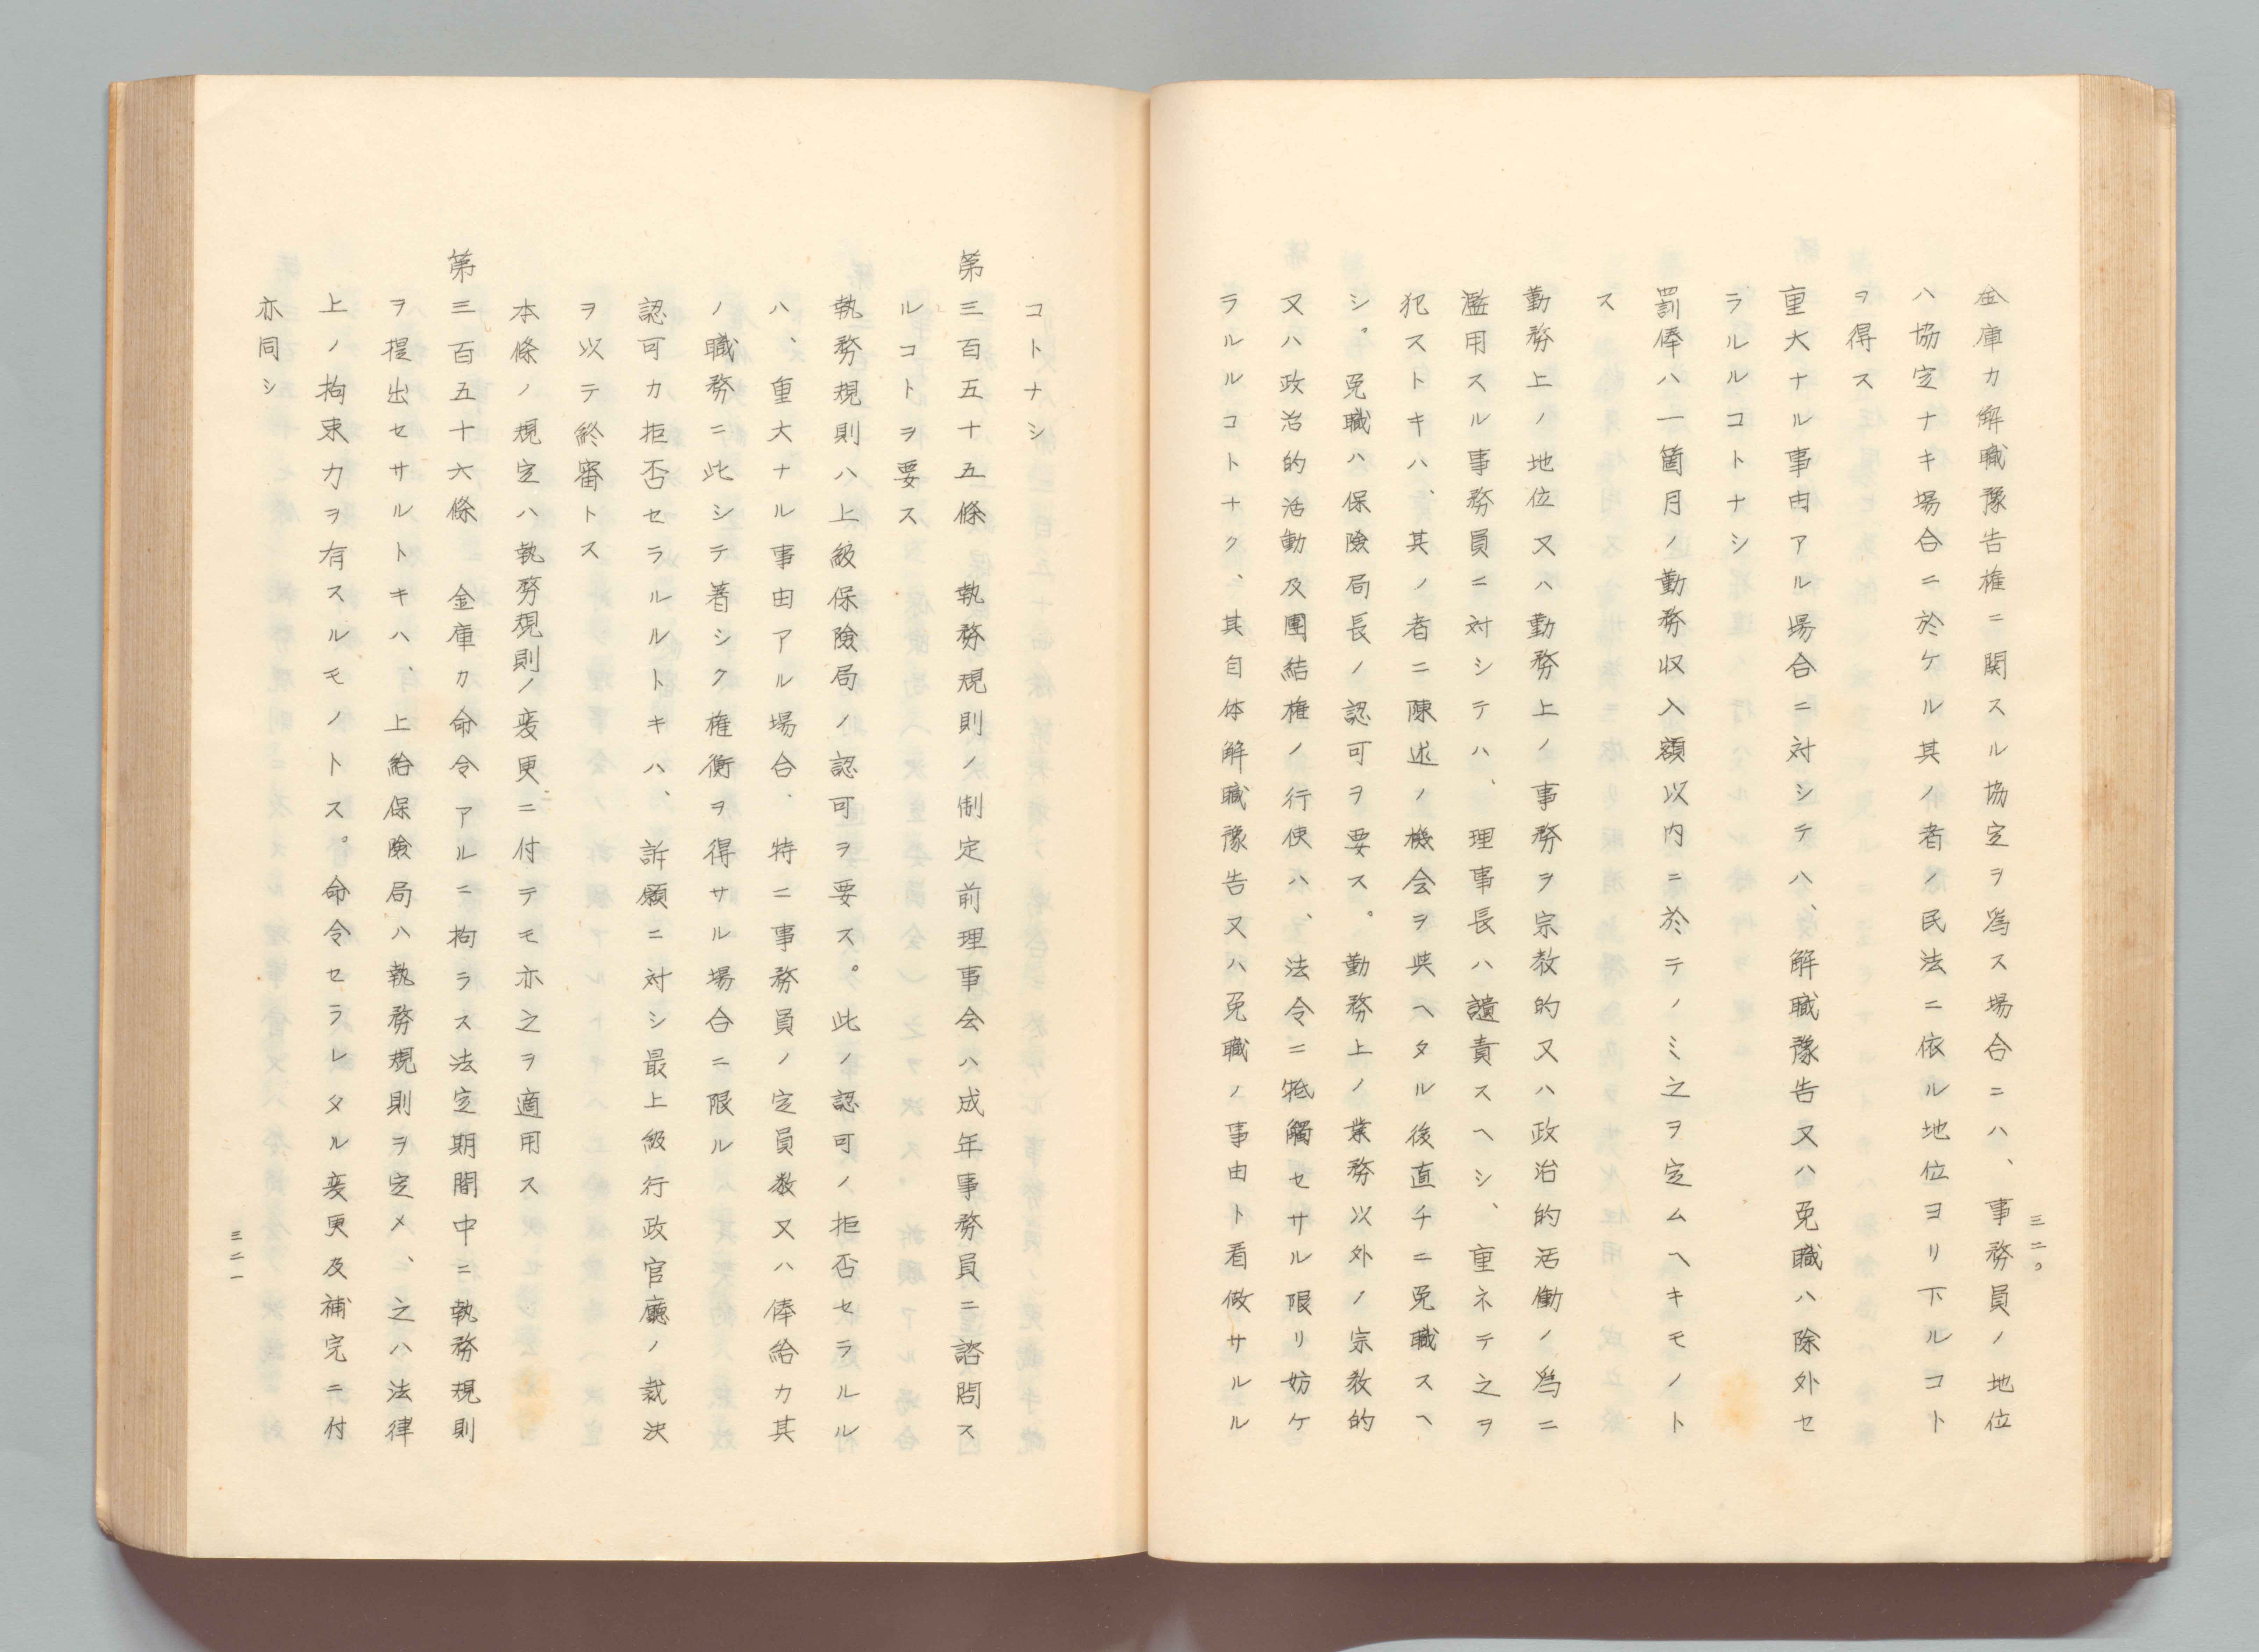 三二〇
金庫カ解職豫告権ニ関スル協定ヲ爲ス場合ニハ、事務員ノ地位
ハ協定ナキ場合ニ於ケル其ノ者ノ民法ニ依ル地位ヨリ下ルコト
ヲ得ス
重大ナル事由アル場合ニ対シテハ、解職豫告又ハ免職ハ除外セ
ラルルコトナシ
罰俸ハ一箇月ノ勤務収入額以内ニ於テノミ之ヲ定ムヘキモノト
ス
勤務上ノ地位又ハ勤務上ノ事務ヲ宗教的又ハ政治的活働ノ爲ニ
濫用スル事務員ニ対シテハ、理事長ハ譴責スヘシ、重ネテ之ヲ
犯ストキハ、其ノ者ニ陳述ノ機会ヲ與ヘタル後直チニ免職スヘ
シ。免職ハ保險局長ノ認可ヲ要ス。勤務上ノ業務以外ノ宗教的
又ハ政治的活動及團結権ノ行使ハ、法令ニ牴觸セサル限リ妨ケ
ラルルコトナク、其自体解職豫告又ハ免職ノ事由ト看做サルル
コトナシ
第三百五十五條　執務規則ノ制定前理事会ハ成年事務員ニ諮問ス
ルコトヲ要ス
執務規則ハ上級保險局ノ認可ヲ要ス。此ノ認可ノ拒否セラルル
ハ、重大ナル事由アル場合、特ニ事務員ノ定員数又ハ俸給カ其
ノ職務ニ比シテ著シク権衡ヲ得サル場合ニ限ル
認可カ拒否セラルルトキハ、訴願ニ対シ最上級行政官廳ノ裁決
ヲ以テ終審トス
本條ノ規定ハ執務規則ノ変更ニ付テモ亦之ヲ適用ス
第三百五十六條　金庫カ命令アルニ拘ラス法定期間中ニ執務規則
ヲ提出セサルトキハ、上給保險局ハ執務規則ヲ定メ、之ハ法律
上ノ拘束力ヲ有スルモノトス。命令セラレタル変更及補完ニ付
亦同シ
三二一